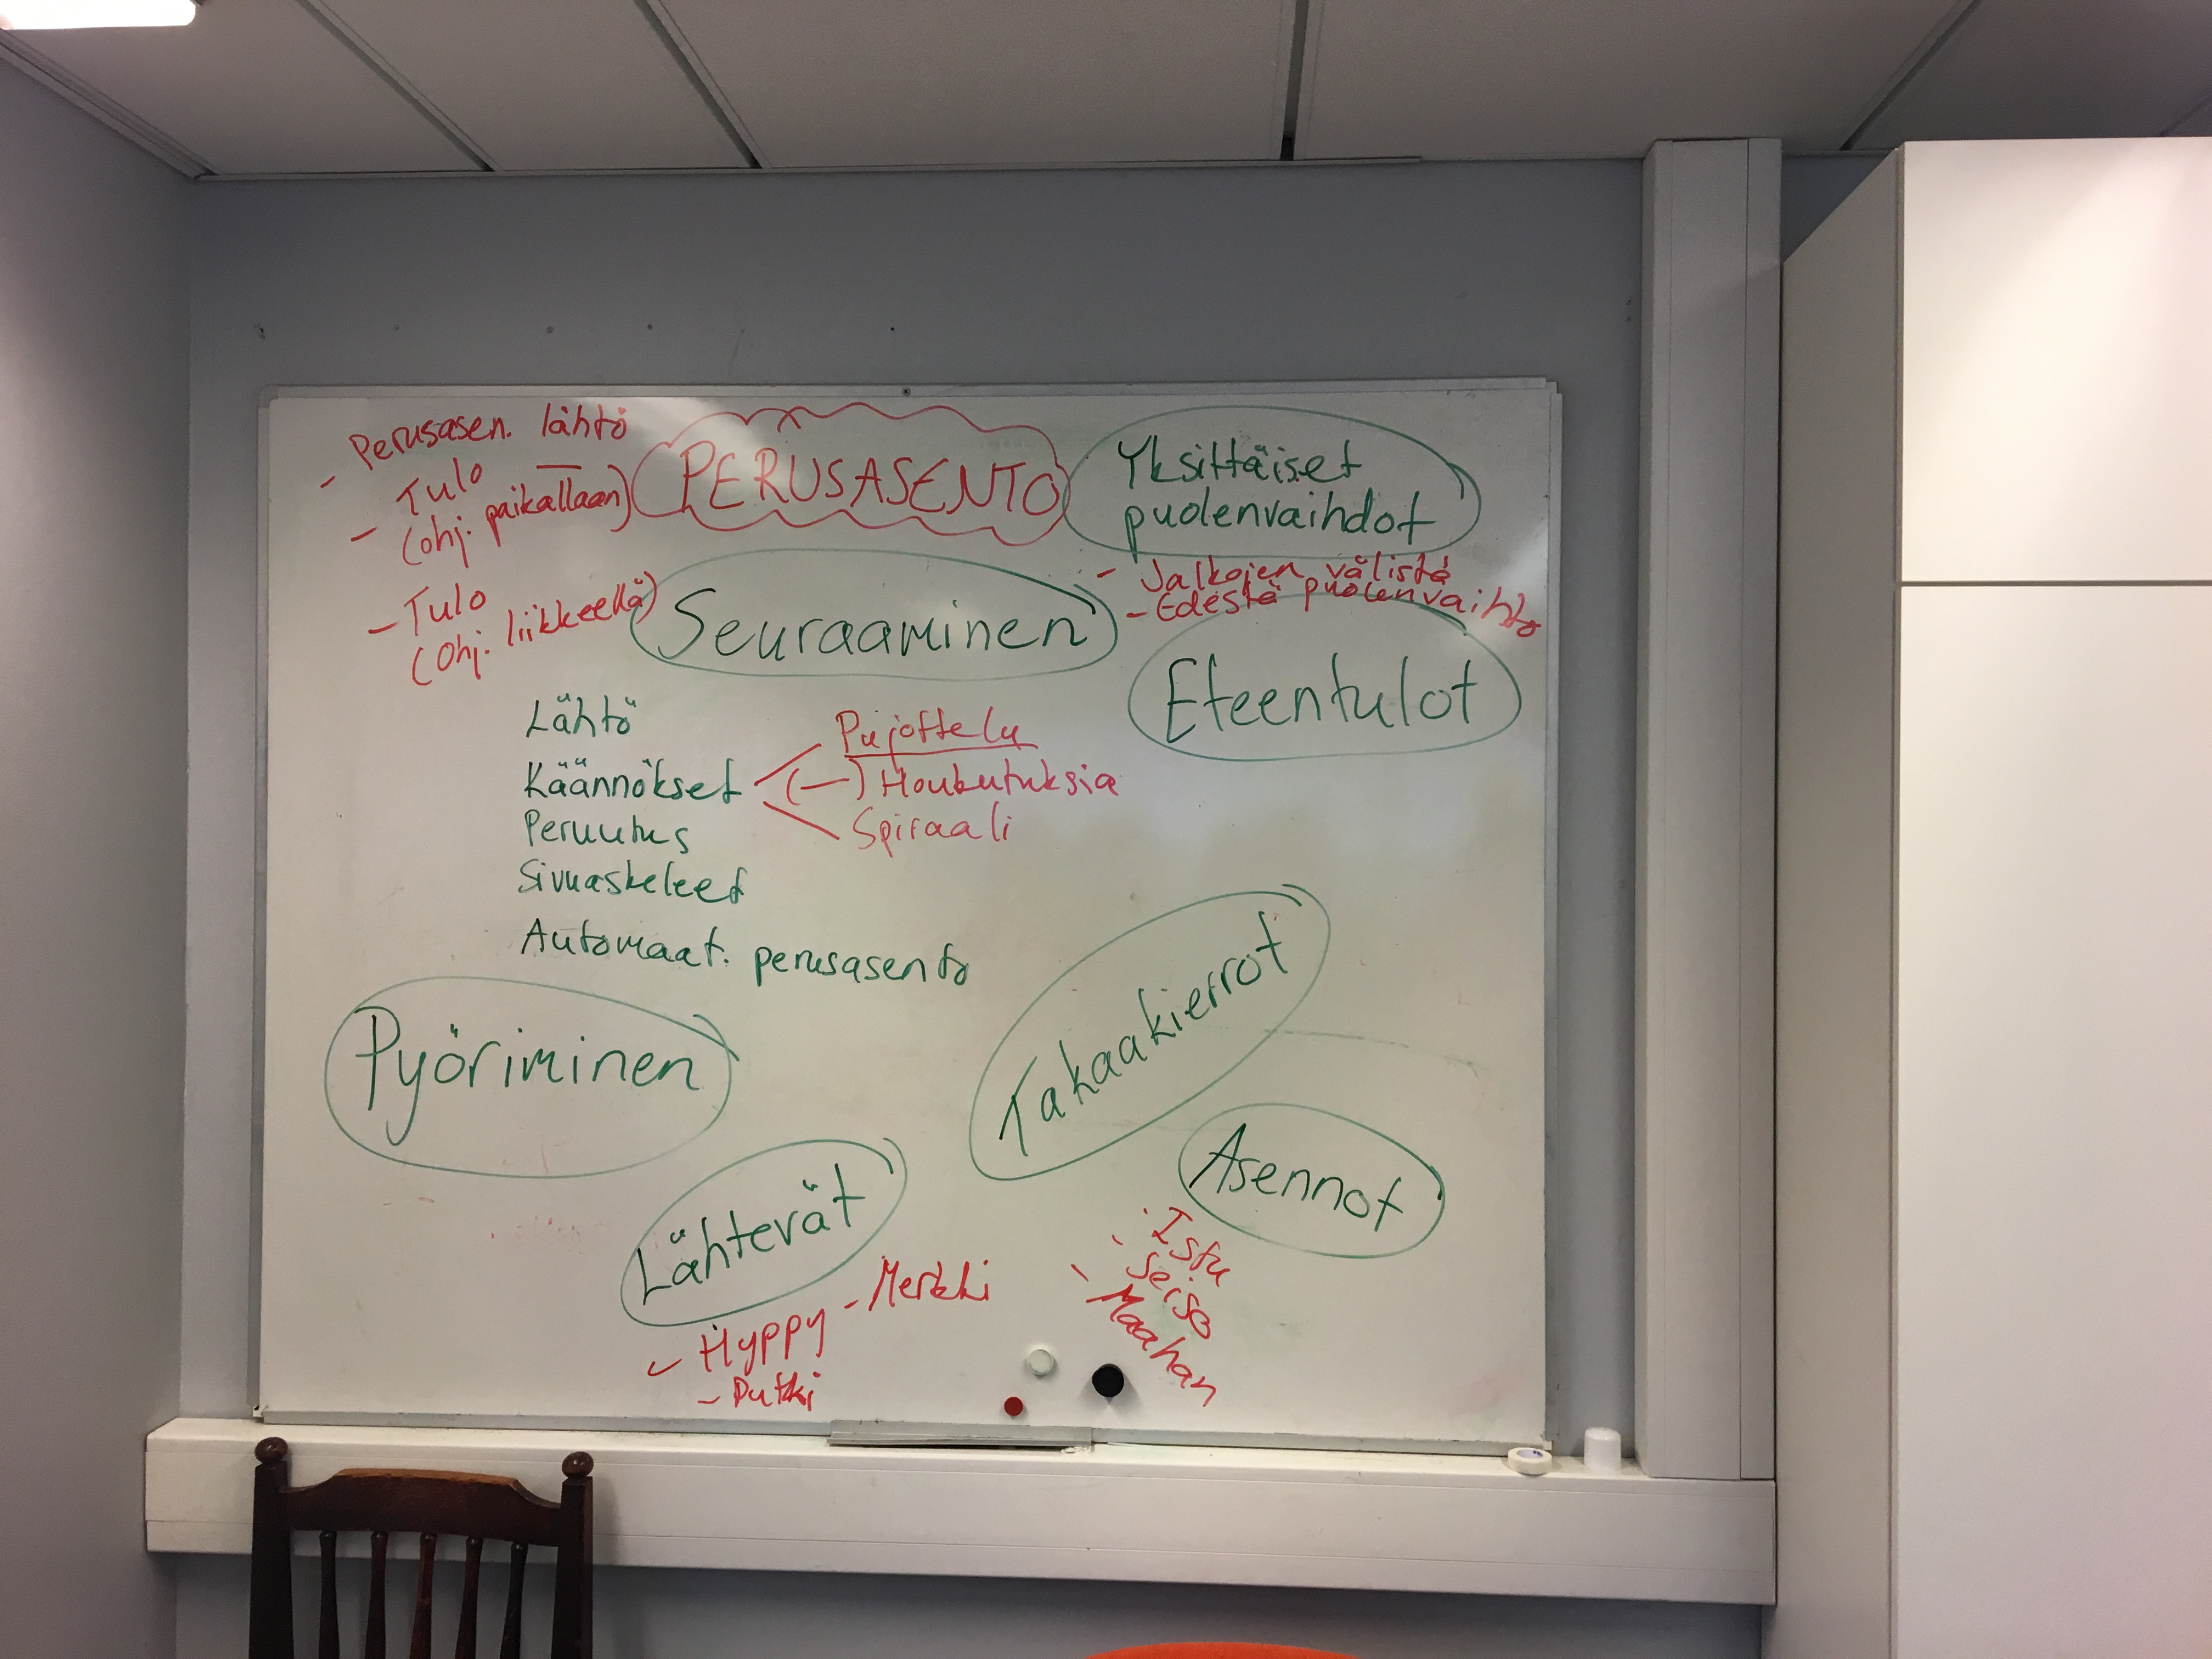 Perusasen. lähtö
- Tulo
- (ohj. paikallaan)
- Tulo
(Ohj. liikkeellä)
PERUSASENTO
Yksittäiset
puolenvaihdot
- Jalkojen välistä
- Edestä puolenvaihto
Seuraaminen
Eteentulot
Lähtö
Käännökset
Peruutus
Sivuaskeleet
Automaat. perusasento
Pujottelu
(—) Houkutuksia
Spiraali
Pyöriminen
Takaakierrot
Lähtevät
- Merkki
- Hyppy
- Putki
Asennot
- Istu
- Seiso
- Maahan